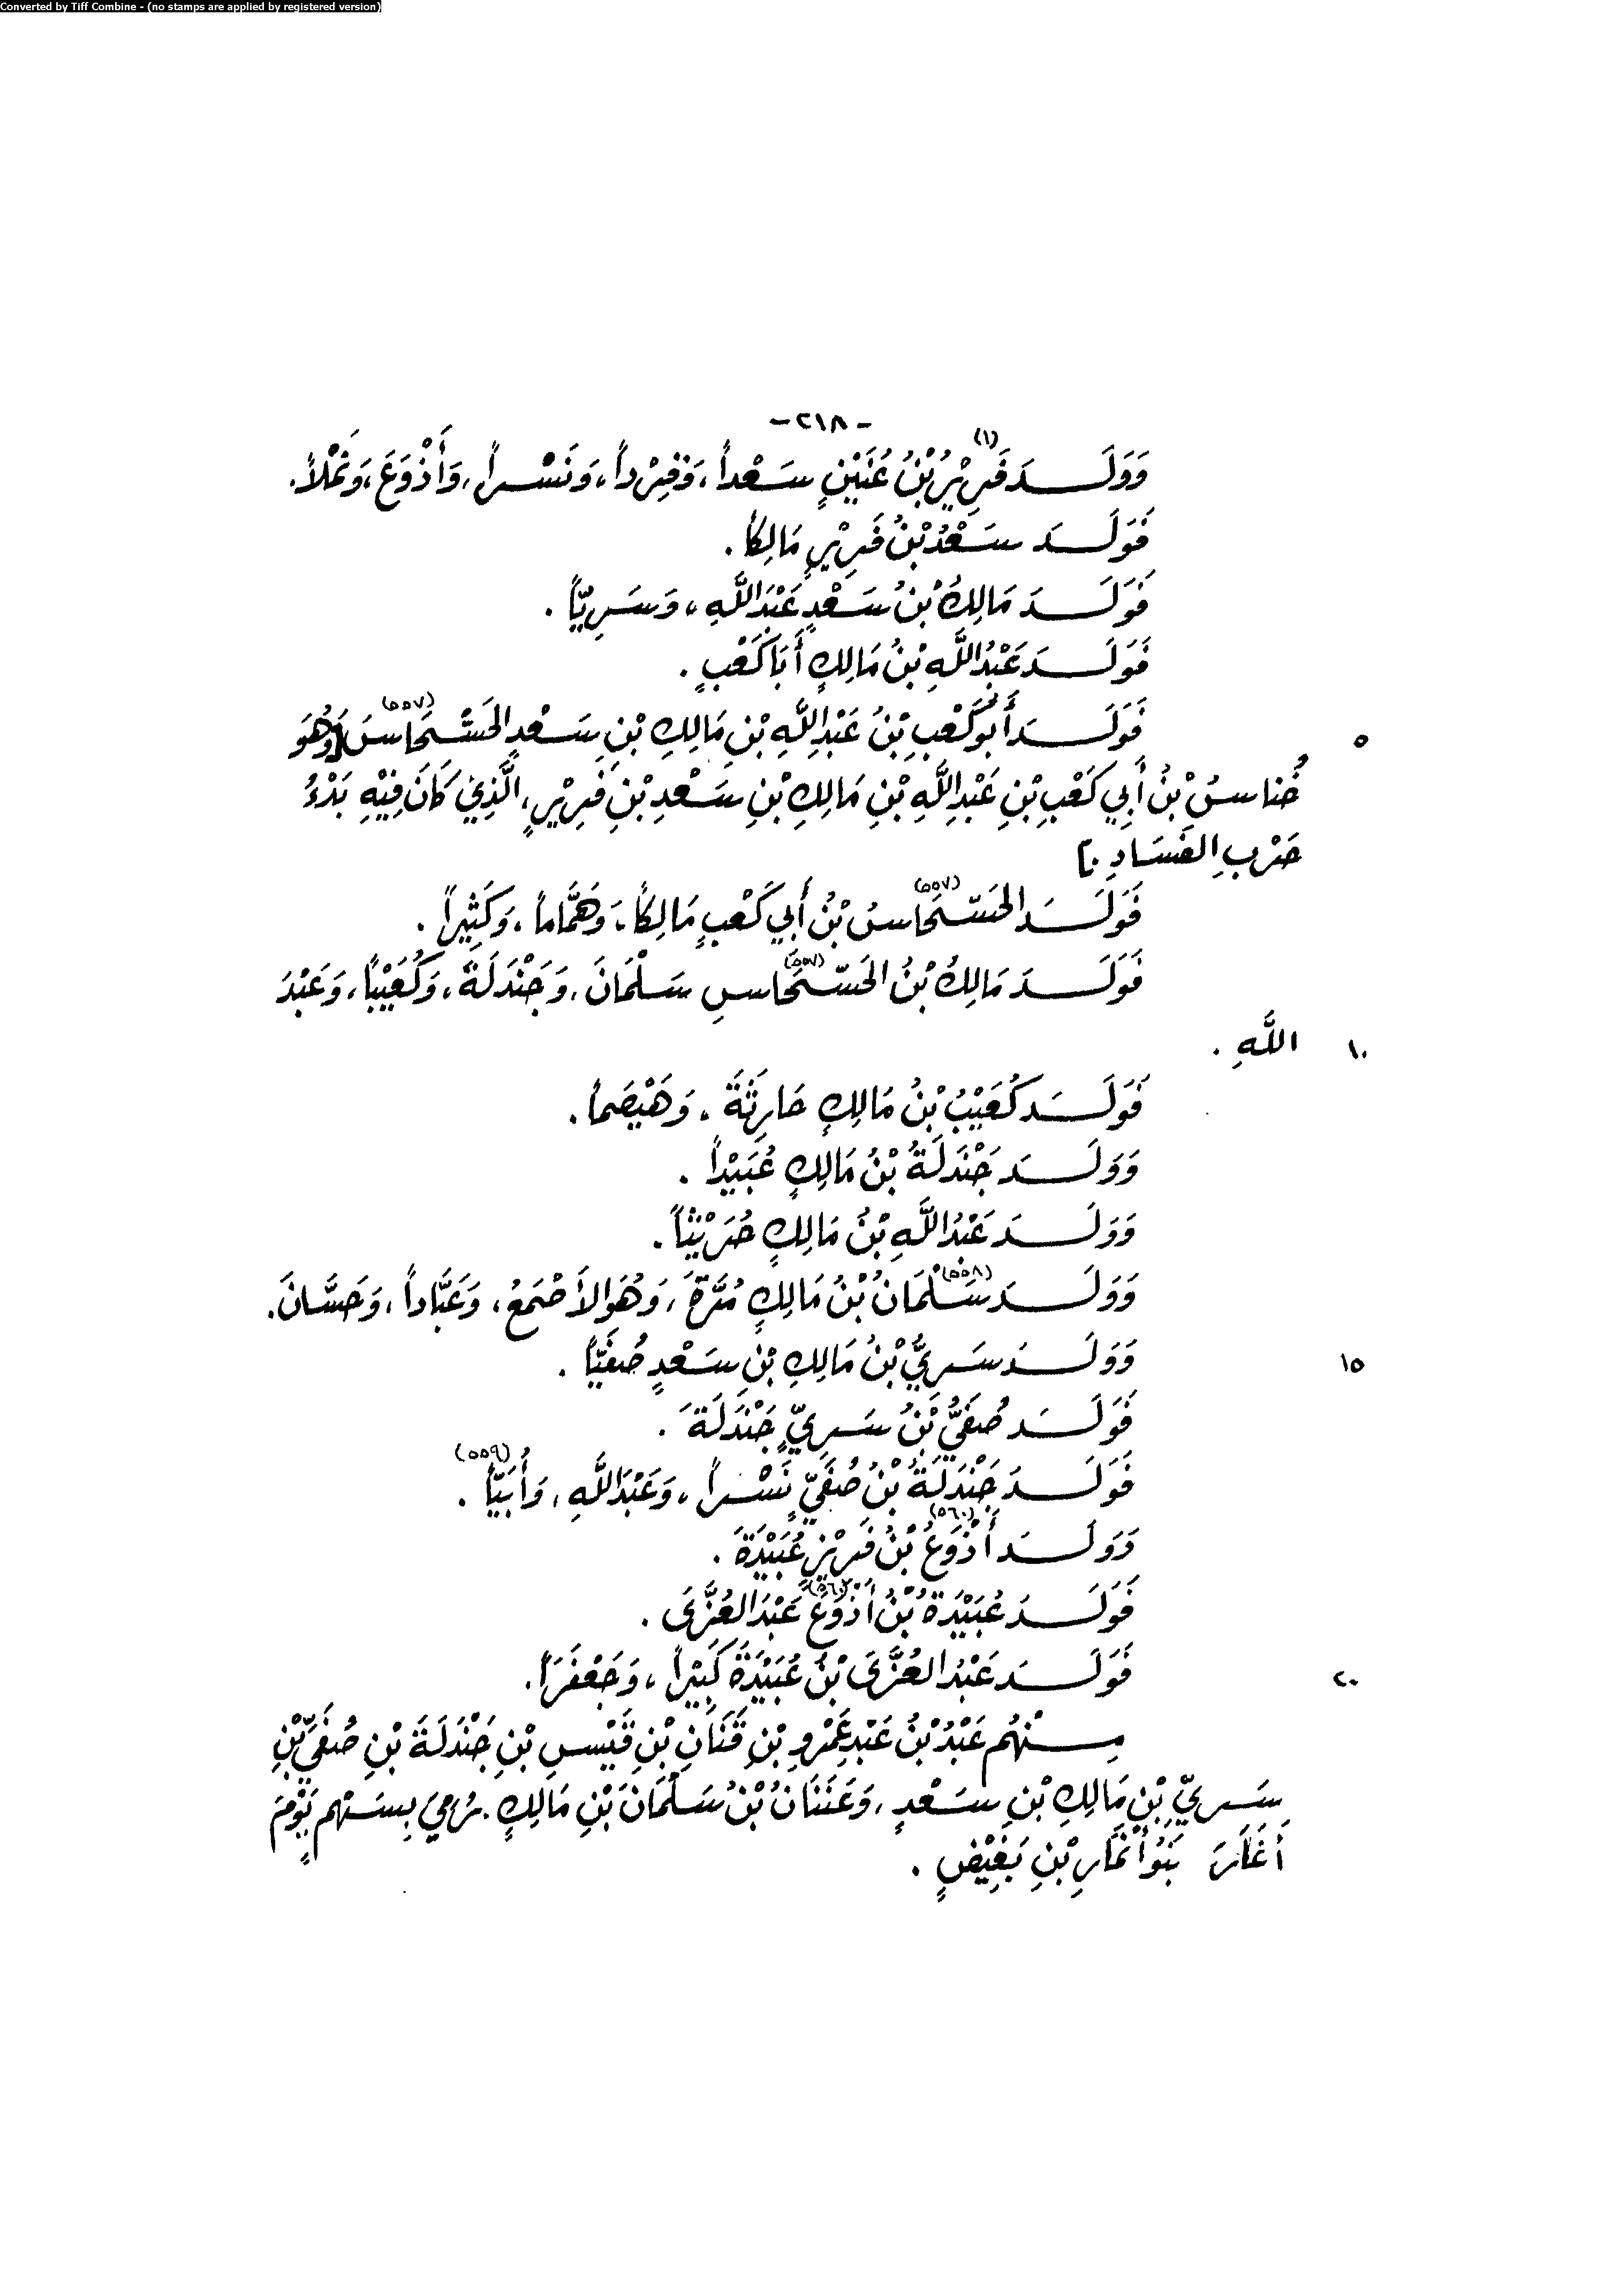 Converted by Tiff Combine - (no stamps are applied by registered version)
-٢١٨-
وَوَلَـدَ فَرِيْرُ بْنُ عُنَيْنٍ(١) سَعْداً، وَفِرْداً، وَنَسْراً، وَأَذْوَعَ، وَثَمْلاً.
فَوَلَـدَ سَعْدُ بْنُ فَرِيْرٍ مَالِكاً.
فَوَلَـدَ مَالِكُ بْنُ سَعْدٍ عَبْدَ اللَّهِ، وَسَرِيّاً.
فَوَلَـدَ عَبْدُ اللَّهِ بْنُ مَالِكٍ أَبَا كَعْبٍ.
٥ فَوَلَـدَ أَبُو كَعْبِ بْنُ عَبْدِ اللَّهِ بْنِ مَالِكِ بْنِ سَعْدٍ الحَسْحَاسَ(٥٥٧) [وَهُوَ
خُنَاسُ بْنُ أَبِي كَعْبِ بْنِ عَبْدِ اللَّهِ بْنِ مَالِكِ بْنِ سَعْدِ بْنِ فَرِيْرٍ، الَّذِي كَانَ فِيْهِ بَدْءُ
حَرْبِ الفَسَادِ.]
فَوَلَـدَ الحَسْحَاسُ(٥٥٧) بْنُ أَبِي كَعْبٍ مَالِكاً، وَهَمَّاماً، وَكَثِيراً.
فَوَلَـدَ مَالِكُ بْنُ الحَسْحَاسِ(٥٥٧) سَلْمَانَ، وَجَنْدَلَةَ، وَكُعَيْباً، وَعَبْدَ
١٠ اللَّهِ.
فَوَلَـدَ كُعَيْبُ بْنُ مَالِكٍ حَارِثَةَ، وَهَيْصَماً.
وَوَلَـدَ جَنْدَلَةُ بْنُ مَالِكٍ عُبَيْداً.
وَوَلَـدَ عَبْدُ اللَّهِ بْنُ مَالِكٍ حُرَيْثاً.
وَوَلَـدَ سَلْمَانُ(٥٥٨) بْنُ مَالِكٍ مُرَّةَ، وَهُوَ الأَصْمَعُ، وَعَبَّاداً، وَحَسَّانَ.
١٥ وَوَلَـدَ سَرِيُّ بْنُ مَالِكِ بْنِ سَعْدٍ صُفَيّاً.
فَوَلَـدَ صُفَيُّ بْنُ سَرِيٍّ جَنْدَلَةَ.
فَوَلَـدَ جَنْدَلَةُ بْنُ صُفَيٍّ نَسْراً، وَعَبْدَ اللَّهِ، وَأُبَيّاً(٥٥٩).
وَوَلَـدَ أَذْوَعُ(٥٦٠) بْنُ فَرِيْرٍ عُبَيْدَةَ.
فَوَلَـدَ عُبَيْدَةُ بْنُ أَذْوَعَ(٥٦٠) عَبْدَ العُزَّى.
٢٠ فَوَلَـدَ عَبْدُ العُزَّى بْنُ عُبَيْدَةَ كَبِيْراً، وَجَعْفَراً.
مِـنْهُم عَبْدُ بْنُ عَبْدِ عَمْرِو بْنِ قَنَانِ بْنِ قَيْسِ بْنِ جَنْدَلَةَ بْنِ صُفَيِّ بْنِ
سَرِيِّ بْنِ مَالِكِ بْنِ سَعْدٍ، وَعَنَانُ بْنُ سَلْمَانَ بْنِ مَالِكٍ. رُمِيَ بِسَهْمٍ يَوْمَ
أَغَارَ بَنُو أَنْمَارِ بْنِ بَغِيْضٍ.